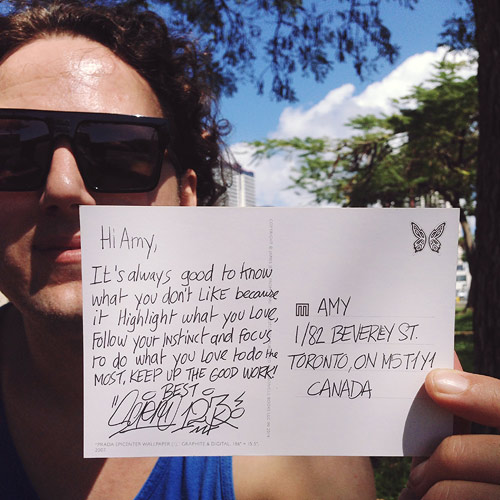 Hi Amy,
It's always good to know
what you don't LIKE because
it Highlight what you Love,
Follow your instinct and focus
to do what you Love to do the
MOST, KEEP UP THE GOOD WORK!
BEST
AMY
1/82 BEVERLEY ST.
TORONTO, ON M5T1Y1
CANADA
2007